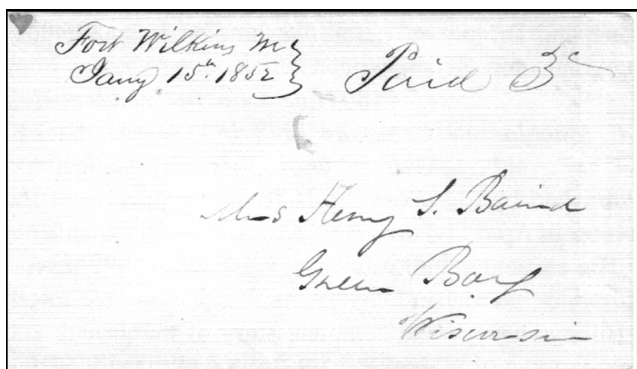 Fort Wilkins M
Jany 15th 1852
Paid 3c
Mrs Henry S. Baird
Green Bay
Wisconsin